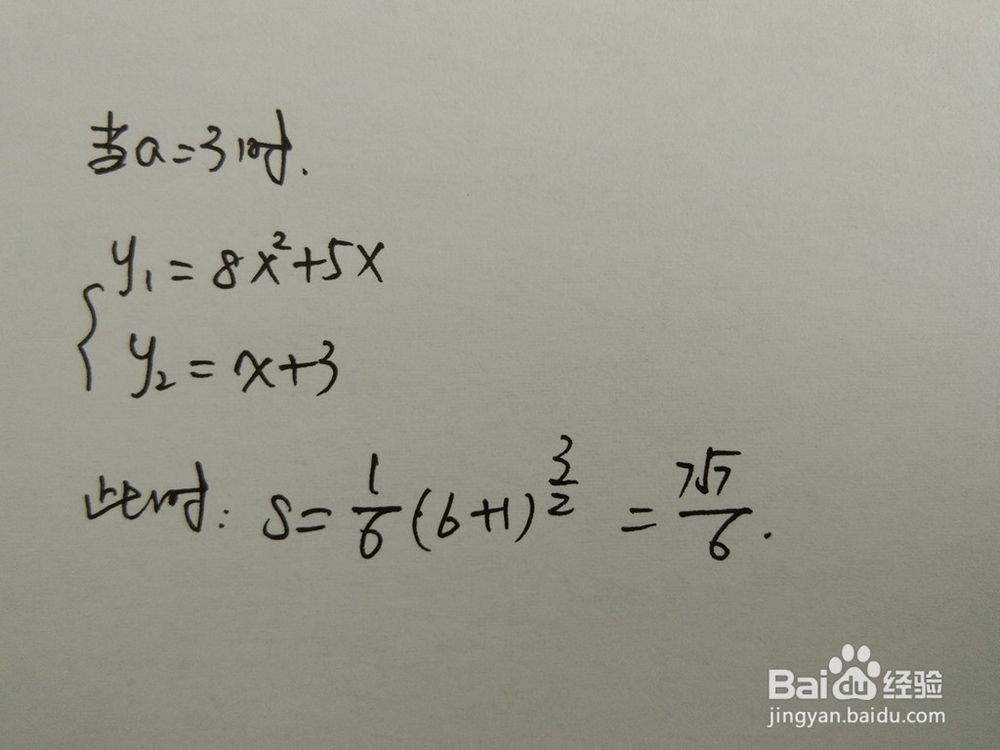 当a=3时.
y₁=8x²+5x
y₂=x+3
此时: S=1/6(6+1)^(3/2)=7√7/6.
Baidu经验
jingyan.baidu.com